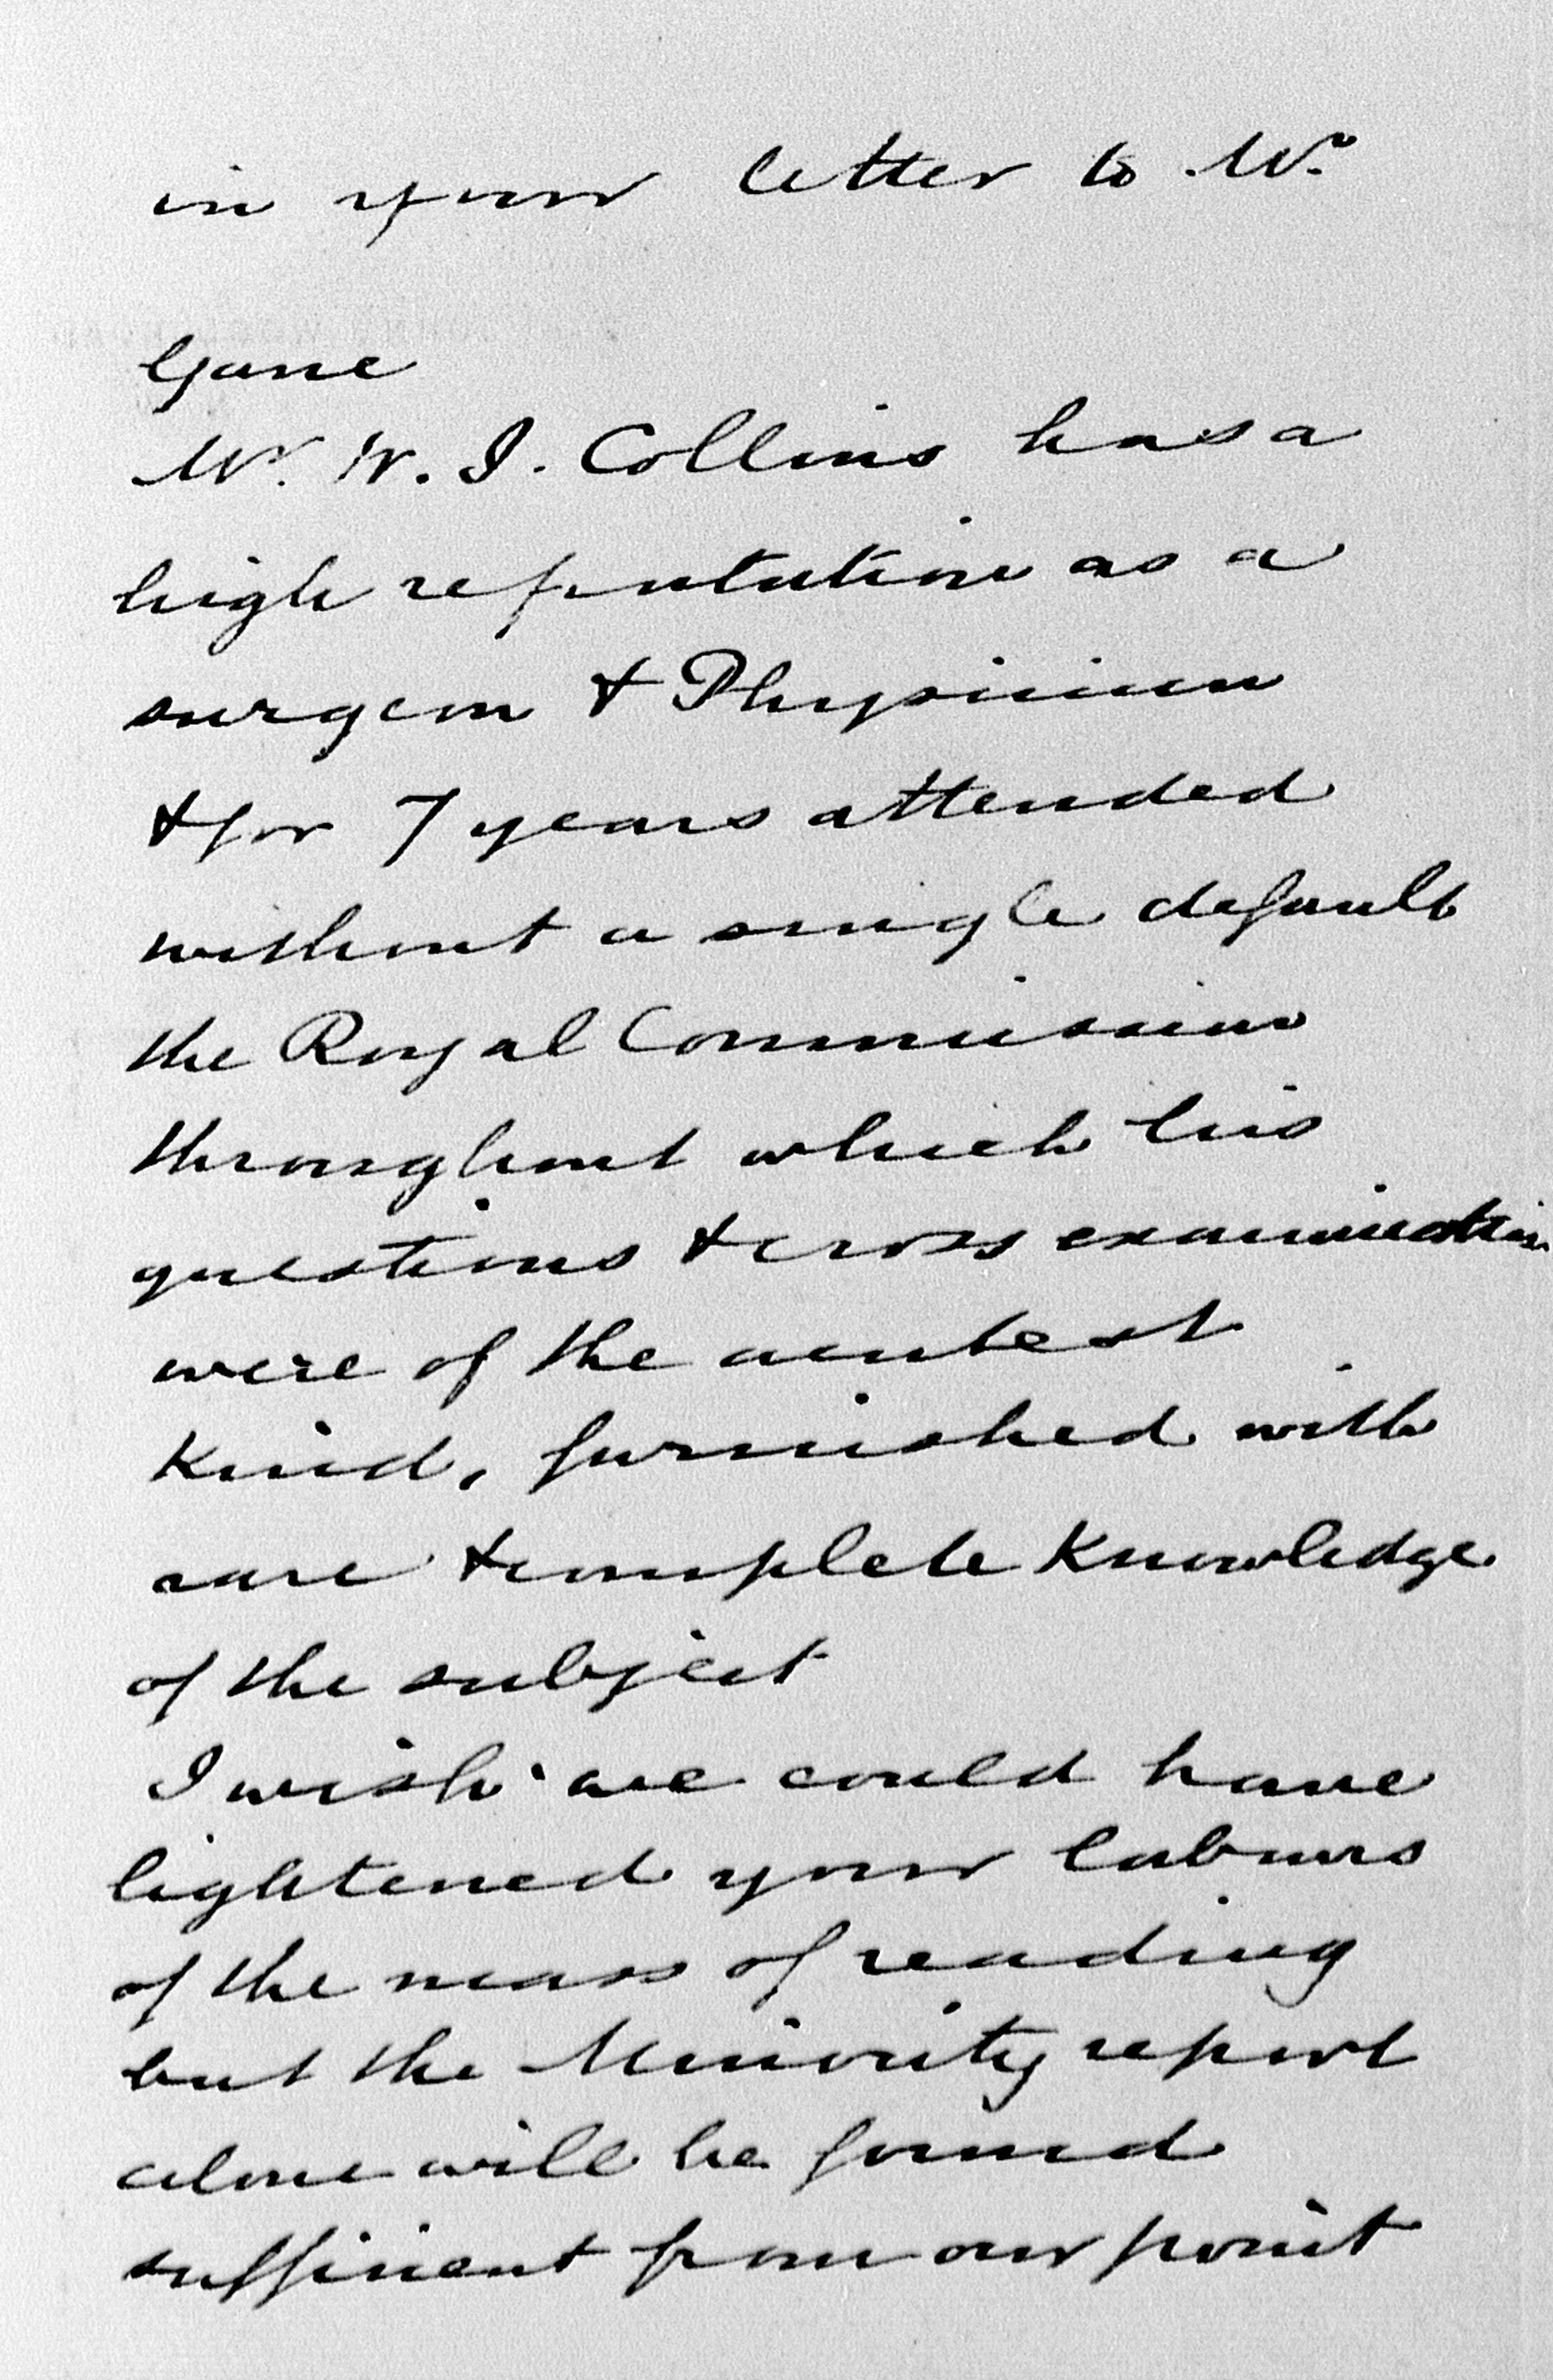 in your letter to Mr.
Gane
Mr. W. J. Collins has a
high reputation as a
surgeon & Physician
& for 7 years attended
without a single default
the Royal Commission
throughout which his
questions & cross examination
were of the acutest
Kind, furnished with
rare & complete Knowledge
of the subject
I wish we could have
lightened your labours
of the mass of reading
but the Minority report
alone will be found
sufficient from our point